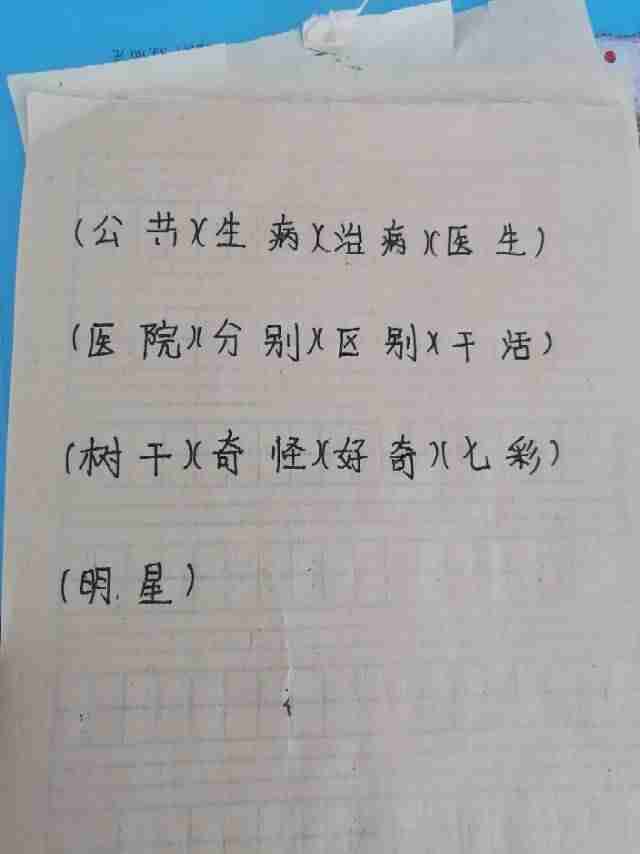 (公共)(生病)(治病)(医生)
(医院)(分别)(区别)(干活)
(树干)(奇怪)(好奇)(七彩)
(明星)